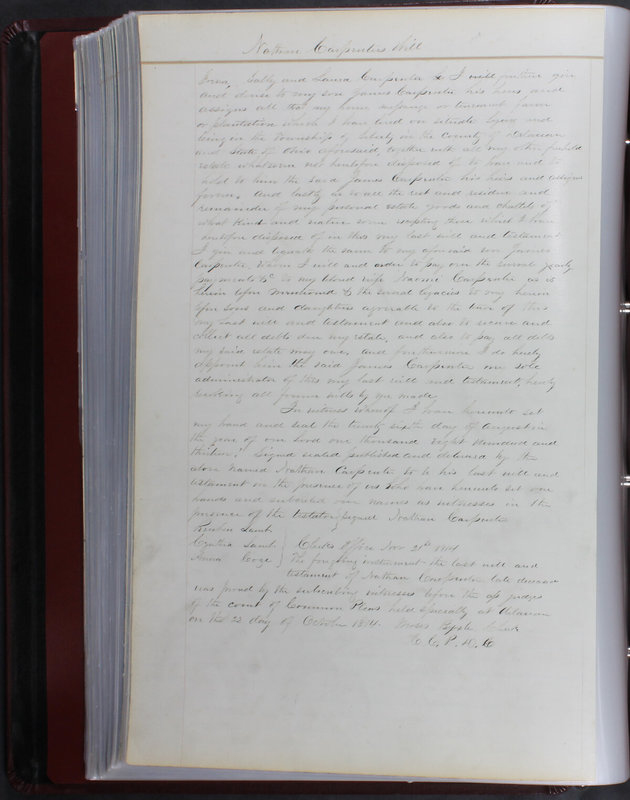 Nathan Carpenters Will
Sally and Laura Carpenter & I will further give
and devise to my son James Carpenter his heirs and
assigns all that my home messuage or tenement farm
or plantation which I have and own situate lying and
being in the township of Liberty in the County of Delaware
and state of Ohio aforesaid together with all my other freehold
estate whatsoever not heretofore disposed of to have and to
hold to him the said James Carpenter his heirs and assigns
forever. And lastly as to all the rest and residue and
remainder of my personal estate goods and chattels of
what kind and nature soever excepting those which I have
heretofore disposed of in this my last will and testament
I give and bequeath the same to my aforesaid son James
Carpenter whom I will and order to pay over the several yearly
payments &c to my beloved wife Carpenter as is
herein before mentioned & the several legacies to my herein
before sons and daughters agreeable to the tenor of this
my last will and testament and also to secure and
collect all debts due my estate, and also to pay all debts
my said estate may owe, and furthermore I do hereby
appoint him the said James Carpenter my sole
administrator of this my last will and testament, hereby
revoking all former wills by me made
In witness whereof I have hereunto set
my hand and seal the twenty sixth day of August in
the year of our Lord one thousand eight hundred and
thirteen. Signed sealed published and delivered by the
above named Nathan Carpenter to be his last will and
testament in the presence of us who have hereunto set our
hands and subscribed our names as witnesses in the
presence of the testator signed Nathan Carpenter
Reuben Lamb
Cynthia Lamb } Clerks Office Nov 21st 1814
The foregoing instrument the last will and
testament of Nathan Carpenter late deceased
was proved by the subscribing witnesses before the judges
of the court of Common Pleas held specially at Delaware
on the 22 day of October 1814. Moses Byxbe Clerk
C. C. P. D. C